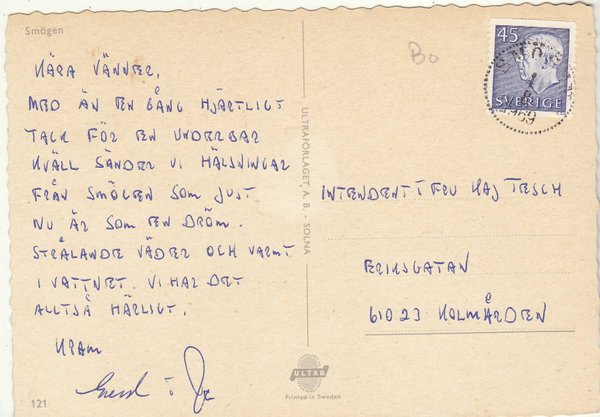 Smögen
KÄRA VÄNNER,
MED ÄN EN GÅNG HJÄRTLIGT
TACK FÖR EN UNDERBAR
KVÄLL SÄNDER VI HÄLSNINGAR
FRÅN SMÖGEN SOM JUST
NU ÄR SOM EN DRÖM.
STRÅLANDE VÄDER OCH VARMT
I VATTNET. VI HAR DET
ALLTSÅ HÄRLIGT.
KRAM
121
ULTRAFÖRLAGET A. B. - SOLNA
ULTRA
Printed in Sweden
Bo
45
SVERIGE
SMÖGEN
1969
INTENDENT I FRU KAJ TESCH
ERIKSGATAN
61023 KOLMÅRDEN